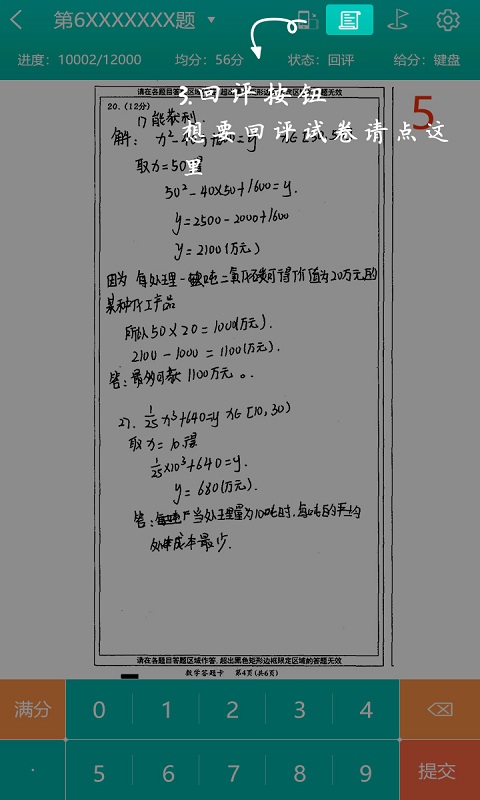 第6XXXXXXX题
进度：10002/12000 均分：56分 状态：回评 给分：键盘
请在各题目答题区域作答
答题无效
3.回评按钮
想要回评试卷请点这里
5
20.（12分）
1) 能获利
解：
取x=50得
50²-40×50+1600=y.
y=2500-2000+1600
y=2100(万元)
因为 每处理一吨二氧化碳可得价值为20万元的
某种化工产品
所以50×20=1000(万元).
2100-1000=1100(万元).
答：最多可获1100万元。
2). 1/25 x³+640=y x∈[10,30)
取x=10得
1/25×10³+640=y.
y=680(万元).
答：当处理量为10吨时,每吨的平均
处理成本最少.
请在各题目答题区域作答，超出黑色矩形边框限定区域的答题无效
数学答题卡 第4页(共6页)
满分 0 1 2 3 4
. 5 6 7 8 9 提交